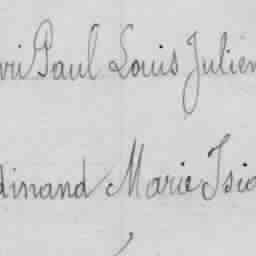 vri Paul Louis Julien
dinand Marie Isid